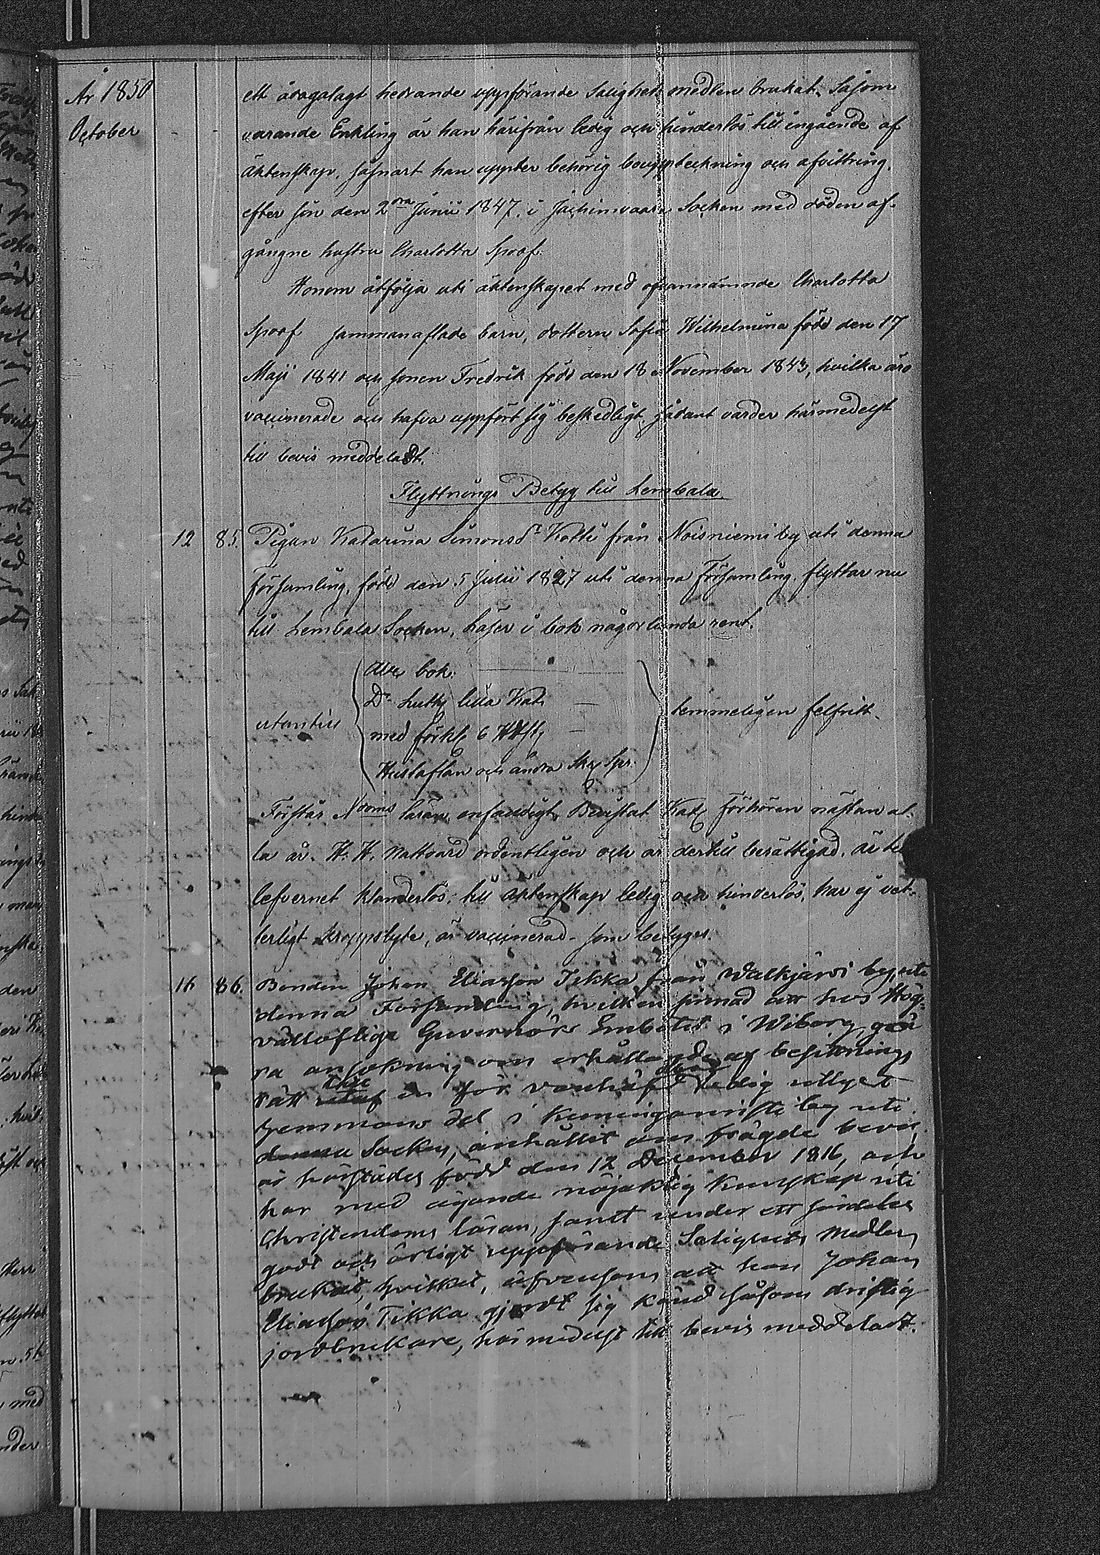 År 1850
October
ett ådagalagt hedrande uppförande Salighets medlen brukat. Såsom
varande Enkling är han härifrån ledig och hinderlös till ingående af
äktenskap, såsnart han uppter behörig bouppteckning och afvittring,
efter sin den 2dra Junii 1847 i Jachimvaara Socken med döden af-
gångne hustru Charlotta Spoof.
Honom åtfölja uti äktenskapet med ofvannämnde Charlotta
Spoof sammanaflade barn, dottern Sofia Wilhelmina född den 17
Maji 1841 och sonen Fredrik född den 18 November 1843, hvilka äro
vaccinerade och hafva uppfört sig beskedligt, sådant varder härmedelst
till bevis meddeladt.
Flyttnings Betyg till Lembala
12 85. Pigan Katarina Simonsdr Kotti från Noisniemi by uti denna
Församling, född den 5 Julii 1827 uti denna Församling, flyttar nu
till Lembala Socken, läser i bok någorlunda rent,
utantill
Abc bok
Dr Luth. lilla Kat.
med förkl. 6 H
Hustaflan och andra Skr. Spr.
temmeligen felfritt.
Förstår N. läran enfaldigt, Bevistat Kat. Förhören nästan al-
la år. H. H. Nattvard ordentligen och är dertill berättigad, är till
lefvernet klanderlös, till äktenskap ledig och hinderlös, har ej vet-
terligt kroppslyte, är vaccinerad. som betygas.
16 86. Bonden Johan Eliasson Tikka från Walkjärvi by uti
denna Församling, hvilken sinnad att hos Hög-
vällofliga Guvernörs Embetet i Wiborg gö-
ra ansökning om erhållande af besittnings
rätt till en för vanhäfd ledig utlyst
hemmans del i Kuninganristi by uti
denna Socken, anhållit om frägde bevis,
är härstädes född den 12 December 1816, och
har med ägande nöjaktig kunskap uti
Christendoms läran, samt under ett hindelse
godt och ärligt uppförande Salighets Medlen
brukat, hvilket, äfvensom att han Johan
Eliasson Tikka gjordt sig känd såsom driftig
jordbrukare, härmedelst till bevis meddeladt.